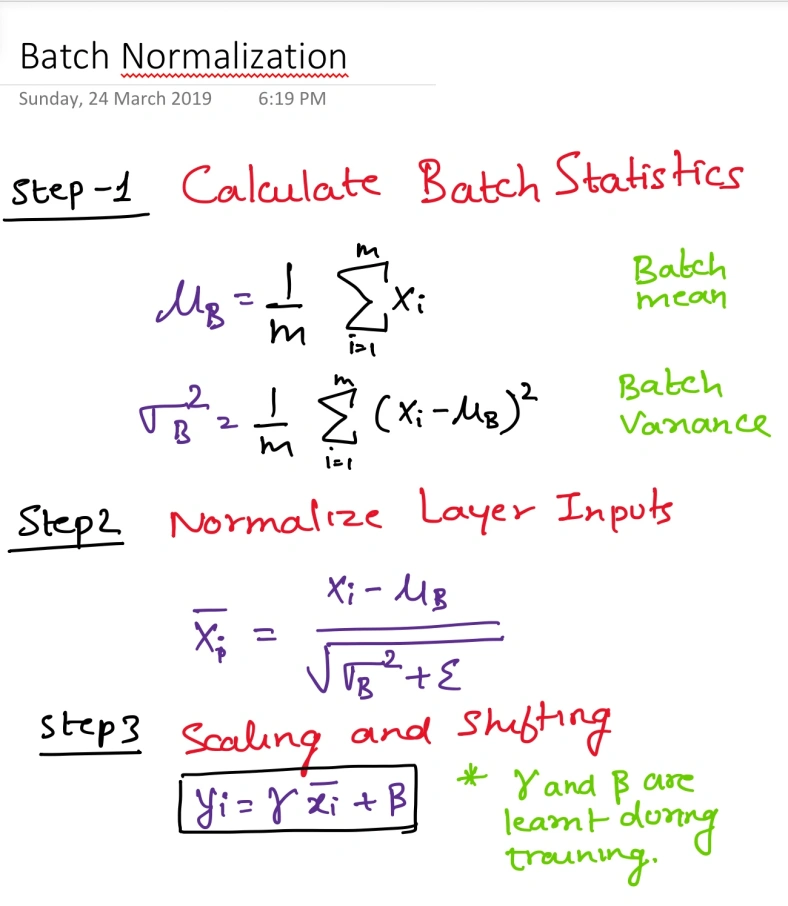 Batch Normalization
Sunday, 24 March 2019 6:19 PM
Step-1 Calculate Batch Statistics
μ_B = 1/m Σ_{i=1}^{m} x_i Batch mean
σ_B^2 = 1/m Σ_{i=1}^{m} (x_i - μ_B)^2 Batch Variance
Step2 Normalize Layer Inputs
x̅_i = (x_i - μ_B) / √(σ_B^2 + ε)
Step3 Scaling and Shifting
y_i = γ x̅_i + β
* γ and β are
learnt during
training.